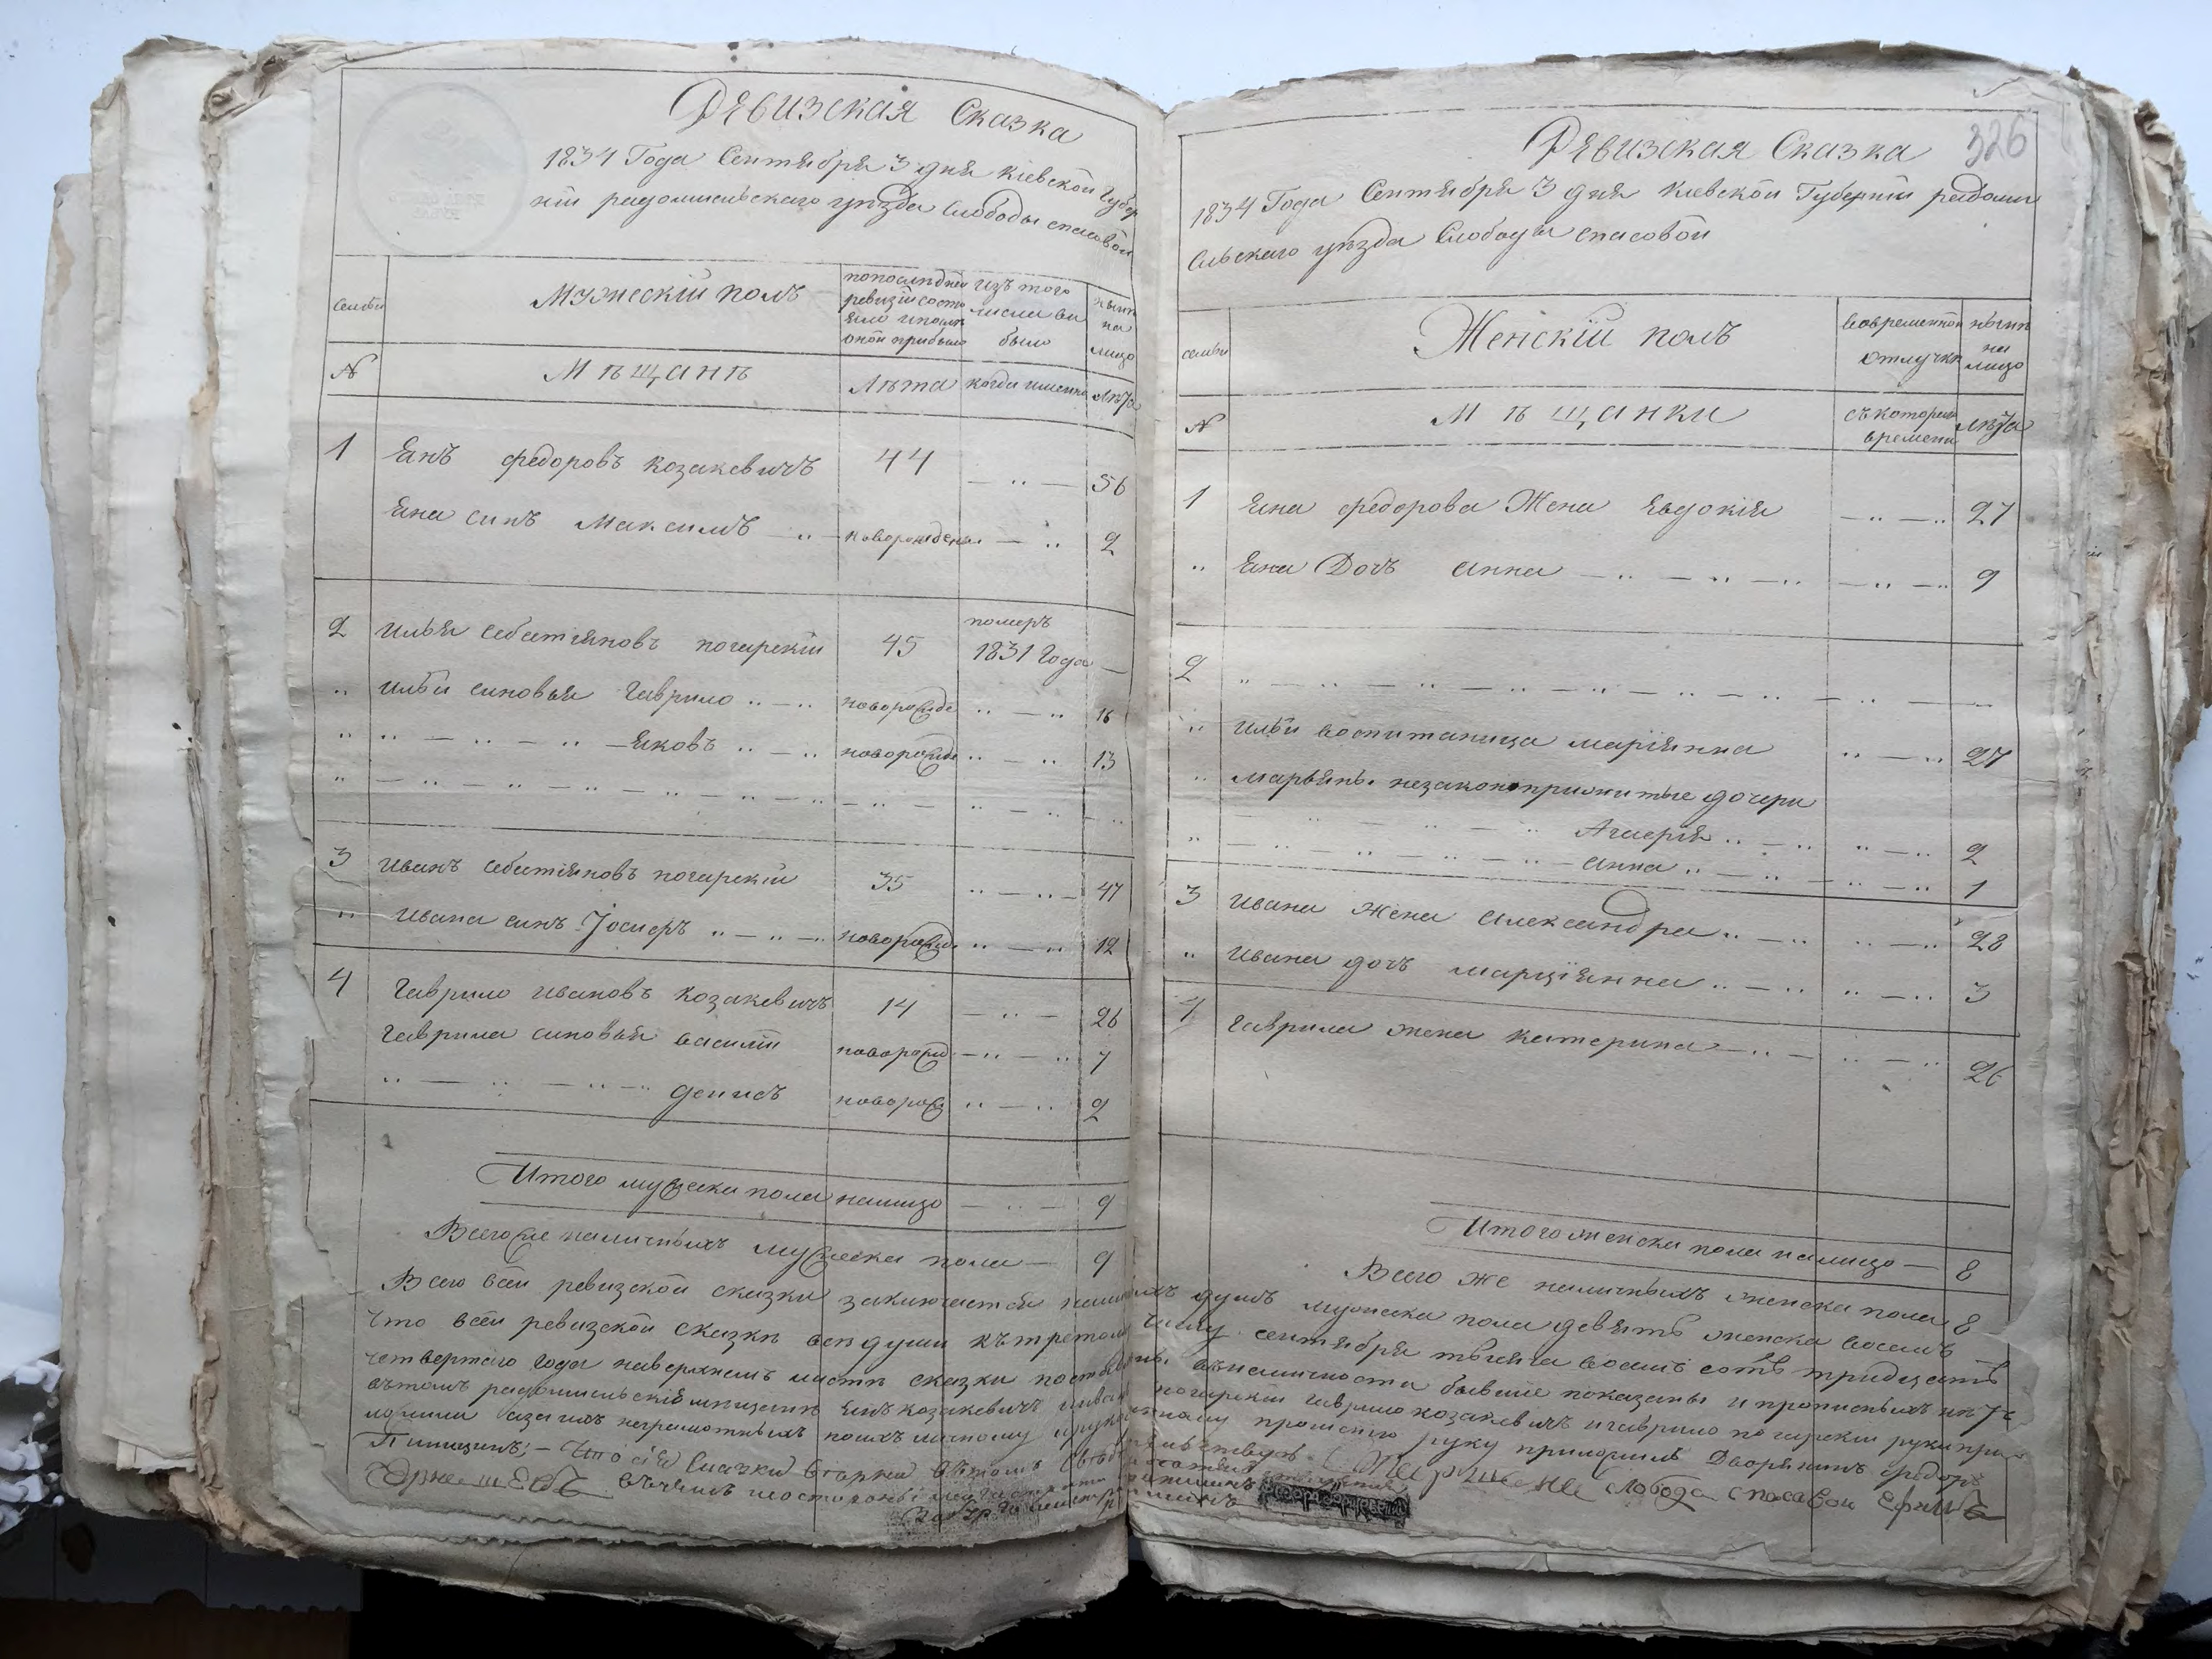 Ревизская Сказка
1834 Года Сентября 3 дня Кіевской Губер
ніи радомисльскаго уѣзда Слободы спасовой
семьи
Мужескій полъ
попоследней
ревизіи состо
яло ипосле
оной прибыло
изъ того
числа вы
было
нынѣ
на
лицо
№
Мѣщанѣ
Лѣта
когда именно
Лѣта
1 Янъ федоровъ Козакевичъ 44 56
Яна синъ Максимъ новорожден. 2
2 Илья себастіяновъ погарскій 45 померъ
1831 Года
Ильи синовья Гаврило новорожде 16
Яковъ новорожде 13
3 Иванъ себастіяновъ погарскій 35 47
Ивана синъ Іосифъ новорожд. 12
4 Гаврило ивановъ Козакевичъ 14 26
Гаврила синовья василій новорожд 7
денисъ новорож 2
Итого мужеска пола налицо 9
Всего же наличныхъ мужеска пола 9
Ревизская Сказка 326
1834 Года Сентября 3 дня Кіевской Губерніи радоми
сльскаго уѣзда Слободы спасовой
семьи
Женскій полъ
вовременной
отлучкѣ
нынѣ
на
лицо
№
Мѣщанки
съкотораго
времени
Лѣта
1 Яна федорова Жена Евдокія 27
Яна Дочъ анна 9
2
Ильи воспитаница маріянна 27
марьяны незаконноприжитые дочери
Агафія 2
анна 1
3 Ивана Жена александра 28
Ивана дочъ марціянна 3
4 Гаврила жена Катерина 26
Итого женска пола налицо 8
Всего же наличныхъ женска пола 8
Всего всей ревизской сказки заключается душъ мужеска пола девять женска восемъ
что всей ревизской сказкѣ всѣ души къ третому числу сентября тысяча восемъ сотъ тридцать
четвертаго года наверхнемъ листѣ сказки внемличности бывшіе показаны и прописныхъ нѣтъ
вътомъ радомисльскіе мѣщане Янъ Козакевичъ погарскій гаврило козакевичъ и гаврило погарскій руки при
ложили азанихъ неграмотныхъ поихъ личному прошенію руку приложилъ Дворянинъ федоръ
слобода спасовой